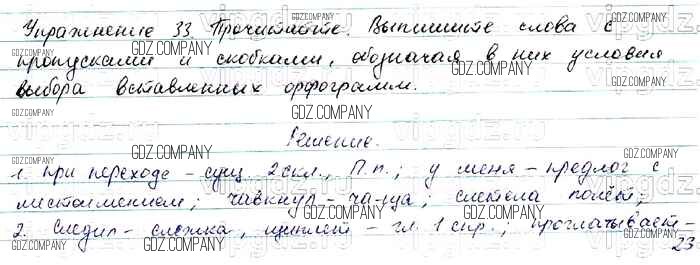 Упражнение 33. Прочитайте. Выпишите слова с
пропусками и скобками, обозначая в них условия
выбора вставленных орфограмм.
Решение.
1. При переходе – сущ. 2 скл., П.п.; у меня – предлог с
местоимением; чавкнул – ча-ща; слетела полёт;
2. Следил – слежка, щиплет – гл. 1 спр.; проглатывает –
23
GDZ.COMPANY
vipgdz.ru